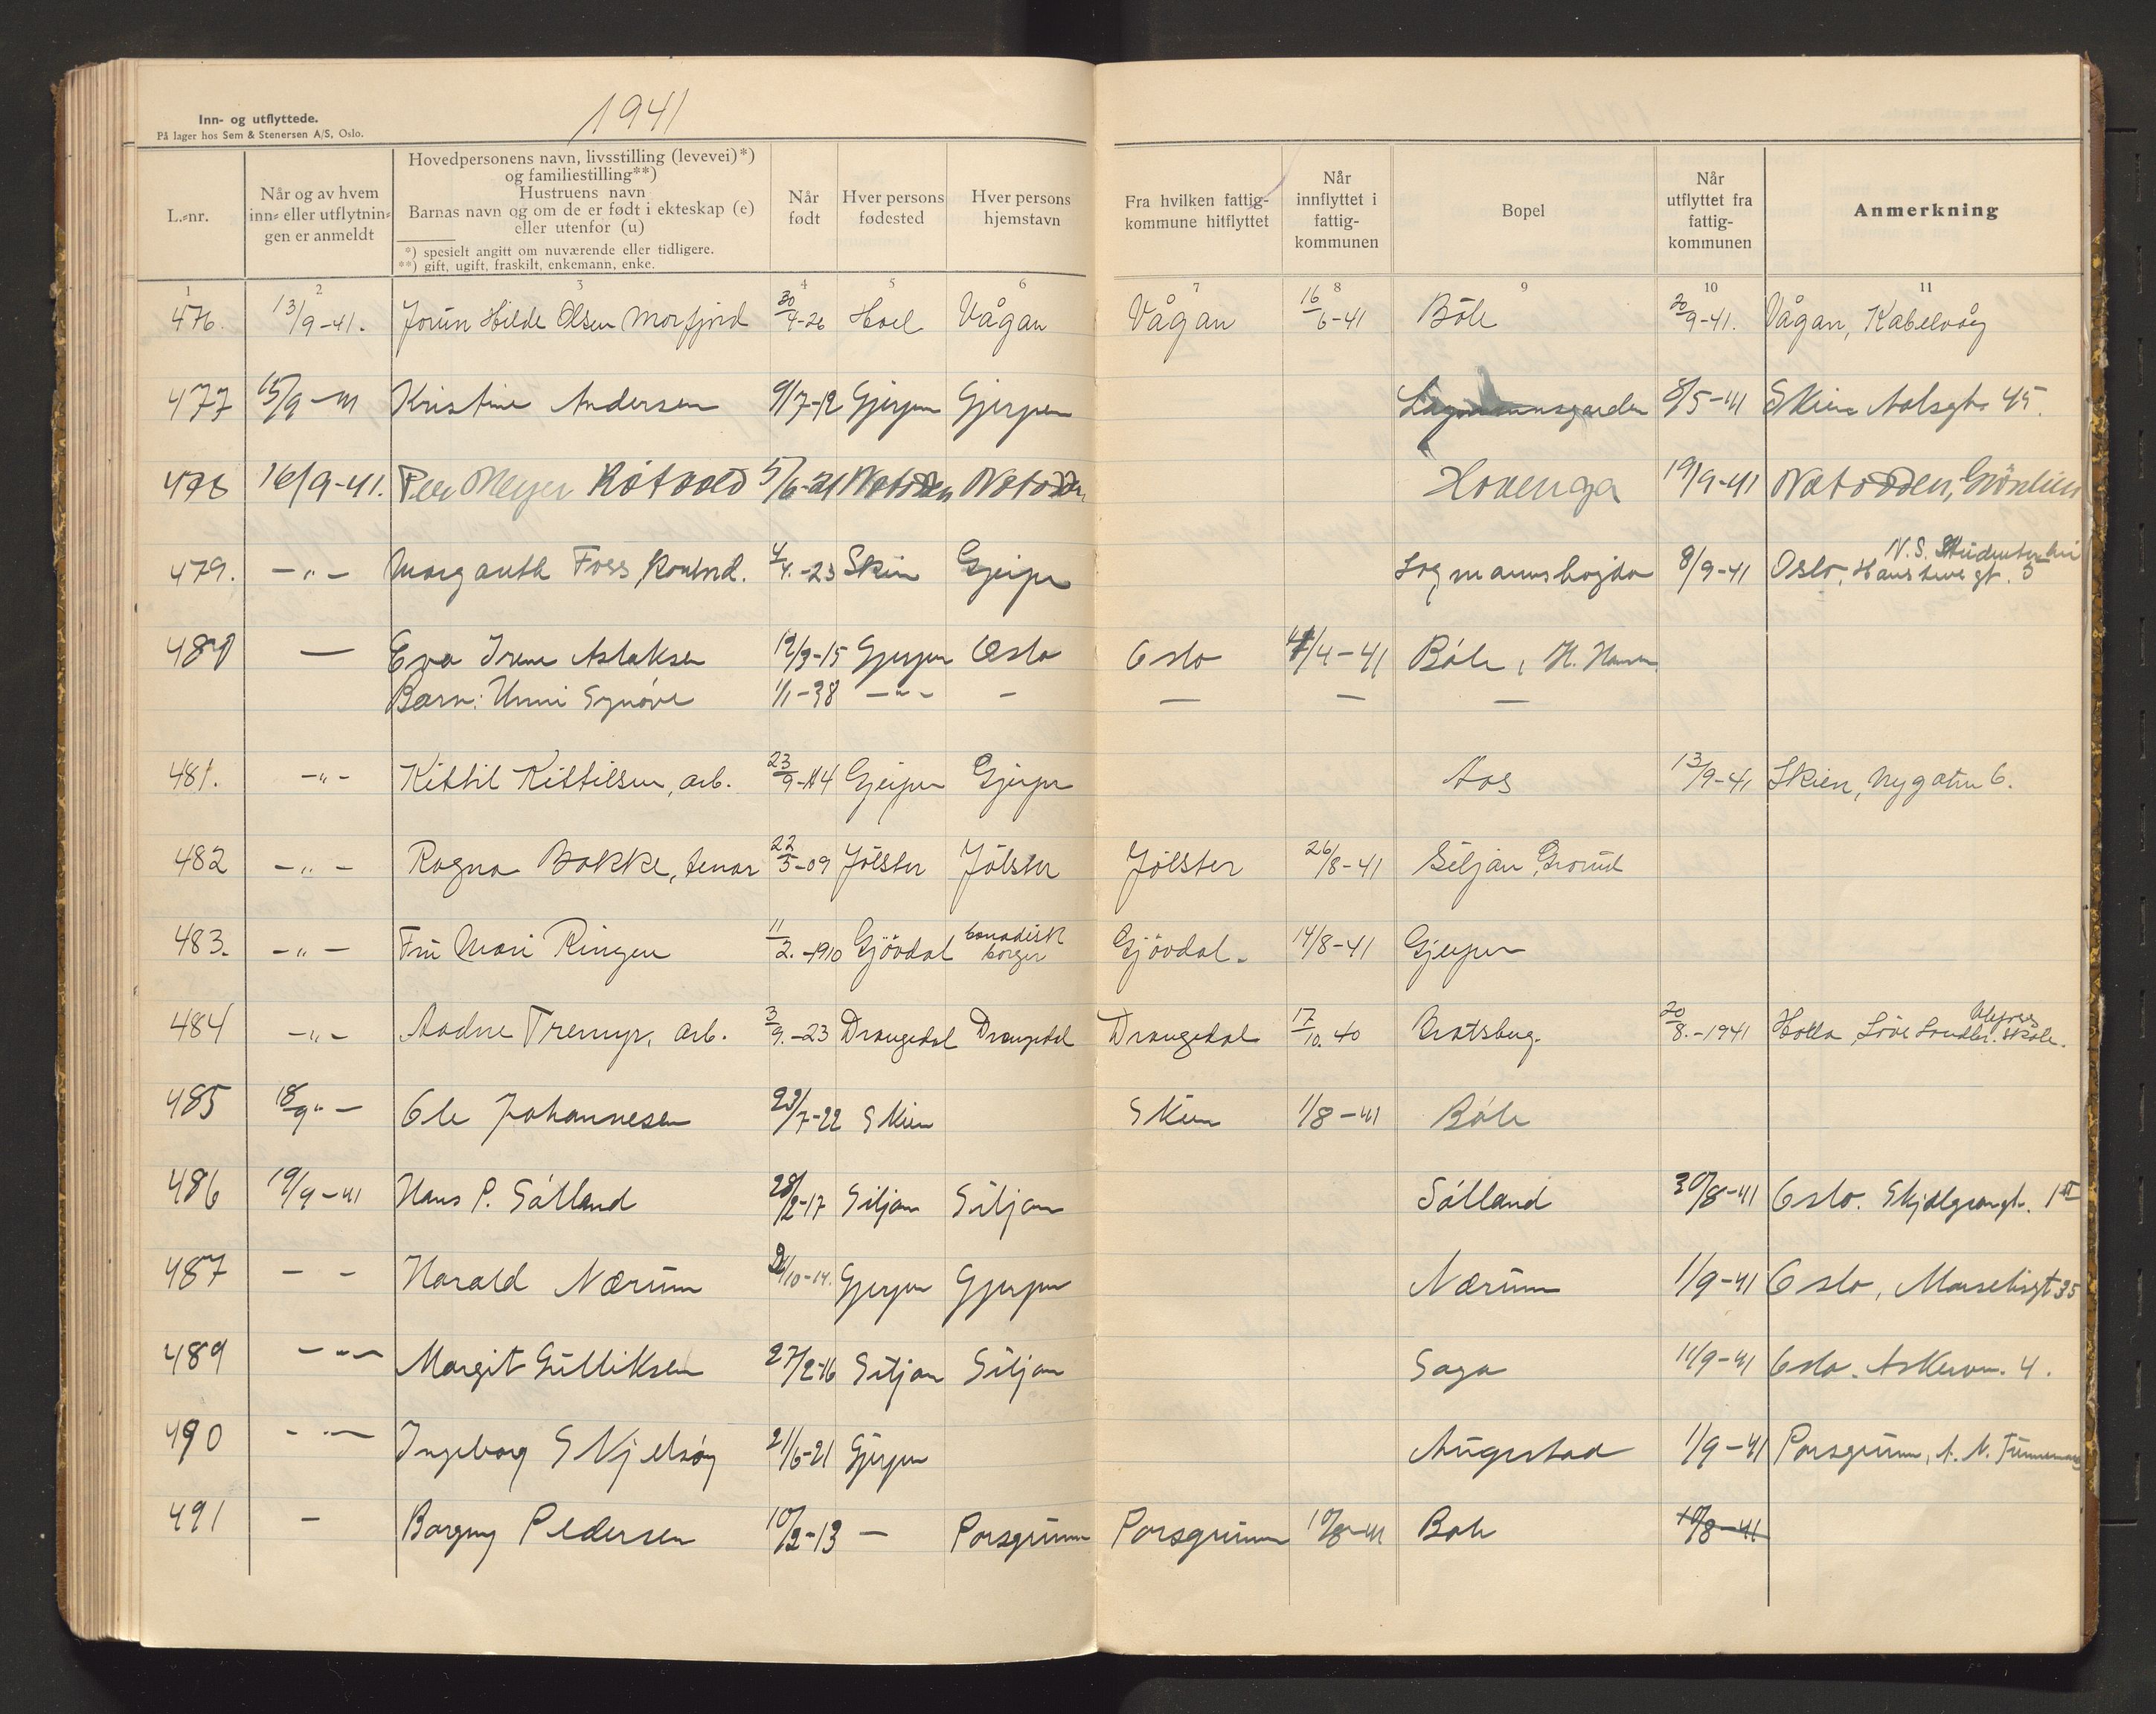 Inn- og utflyttede.
På lager hos Sem & Stenersen A/S, Oslo.
1941
L.-nr.
Når og av hvem inn- eller utflytningen er anmeldt
Hovedpersonens navn, livsstilling (levevei)*)
og familiestilling**)
Hustruens navn
Barnas navn og om de er født i ekteskap (e)
eller utenfor (u)
*) spesielt angitt om nuværende eller tidligere.
**) gift, ugift, fraskilt, enkemann, enke.
Når født
Hver persons fødested
Hver persons hjemstavn
Fra hvilken fattigkommune hitflyttet
Når innflyttet i fattigkommunen
Bopel
Når utflyttet fra fattigkommunen
Anmerkning
1 2 3 4 5 6 7 8 9 10 11
476. 13/9-41. Jorun Hilde Olsen Morfjord 30/4-26 Hoel Vågan Vågan 16/6-41 Böle 20/9-41. Vågan, Kabelvåg
477 15/9-41 Kristine Andersen 9/7-12 Gjerpen Gjerpen 8/5-41 Skien 45.
478 16/9-41. Per Meyer 5/6-21 Notodden Notodden Hovenga 19/9-41 Notodden,
479. -"- Foss kontord. 4/4.-23 Skien Gjerpen 8/9-41 Oslo, N.S. gt. 5
480 — Eva Irene Aslaksen 12/3-15 Gjerpen Oslo Oslo /4-41 Böle, H.
Barn: Unni Synöve 1/1-38 -"- - — — —
481. -"- Kittil Kittilsen, arb. 23/9- Gjerpen Gjerpen Aas 13/9-41 Skien, Nygaten 6.
482 -"- Ragna Bakke, 22/5-09 Jölster Jölster Jölster 26/8-41 Siljan, Grorud
483. -"- Fru Mari Ringen 11/2.-1910 Gjövdal kanadisk borger Gjövdal. 14/8-41 Gjerpen
484 -"- Aadne arb. 3/9.-23 Drangedal Drangedal Drangedal 17/10.40 Bratsberg. 20/8.-1941 Holla, Ulefoss skole.
485 18/9"- Ole Johannesen 23/7-22 Skien Skien 1/8-41 Böle
486 19/9-41 Hans P. Sölland 28/2-17 Siljan Siljan Sölland 30/8-41 Oslo.
487 - - Harald Nærum /10-14. Gjerpen Gjerpen Nærum 1/9-41 Oslo, 35
489 -"- Margit Gulliksen 27/2-16 Siljan Siljan Saga 11/9-41 Oslo. 4.
490 -"- Ingeborg Skjelsöy 21/6-21 Gjerpen Augestad 1/9-41 Porsgrunn, A. N.
491 - Borgny Pedersen 10/2-13 — Porsgrunn Porsgrunn 10/8-41 Bole 10/8-41